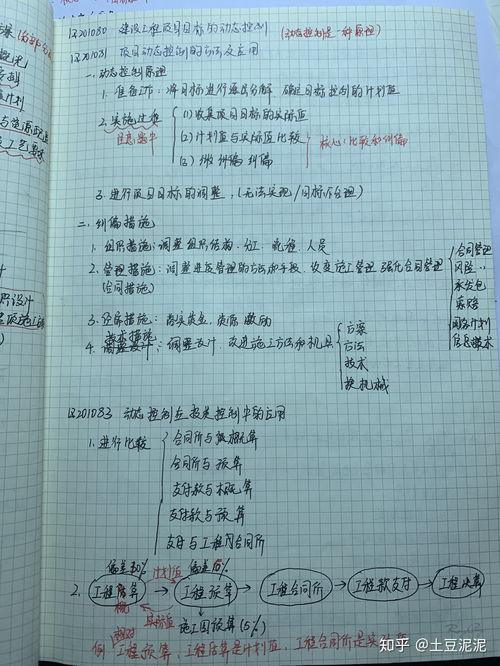 1Z201080 建设工程项目目标的动态控制 (动态控制是一种原理)
1Z201081 项目动态控制的方法及应用
一.动态控制原理
1. 准备工作: 将目标进行逐层分解 确定目标控制的计划值
2. 实施过程 (1)收集项目目标的实际值
注意顺序 (2)计划值与实际值比较 核心:比较和纠偏
(3) 纠偏
3. 进行项目目标的调整. (无法实现/目标不合理)
二.纠偏措施
1. 组织措施:调整组织结构.分工.流程.人员
2. 管理措施: 调整进度管理的方法和手段.改变施工管理 强化合同管理
(合同措施)
合同管理
风险
承发包
索赔
网络计划
信息技术
3. 经济措施: 落实资金. 激励
技术措施
4. 调整设计. 改进施工方法和机具
方案
方法
技术
换机械
1Z201083 动态控制在投资控制中的应用
1. 进行比较
合同价与概算
合同价与预算
支付款与概算
支付款与预算
支付与工程合同价
计划值
2. 工程概算 → 工程预算 → 工程合同价 → 工程款支付 → 工程决算
实际值
施工图预算 (5%)
例. 工程预算. 工程概算是计划值. 工程合同价是实际值
知乎 @土豆泥泥